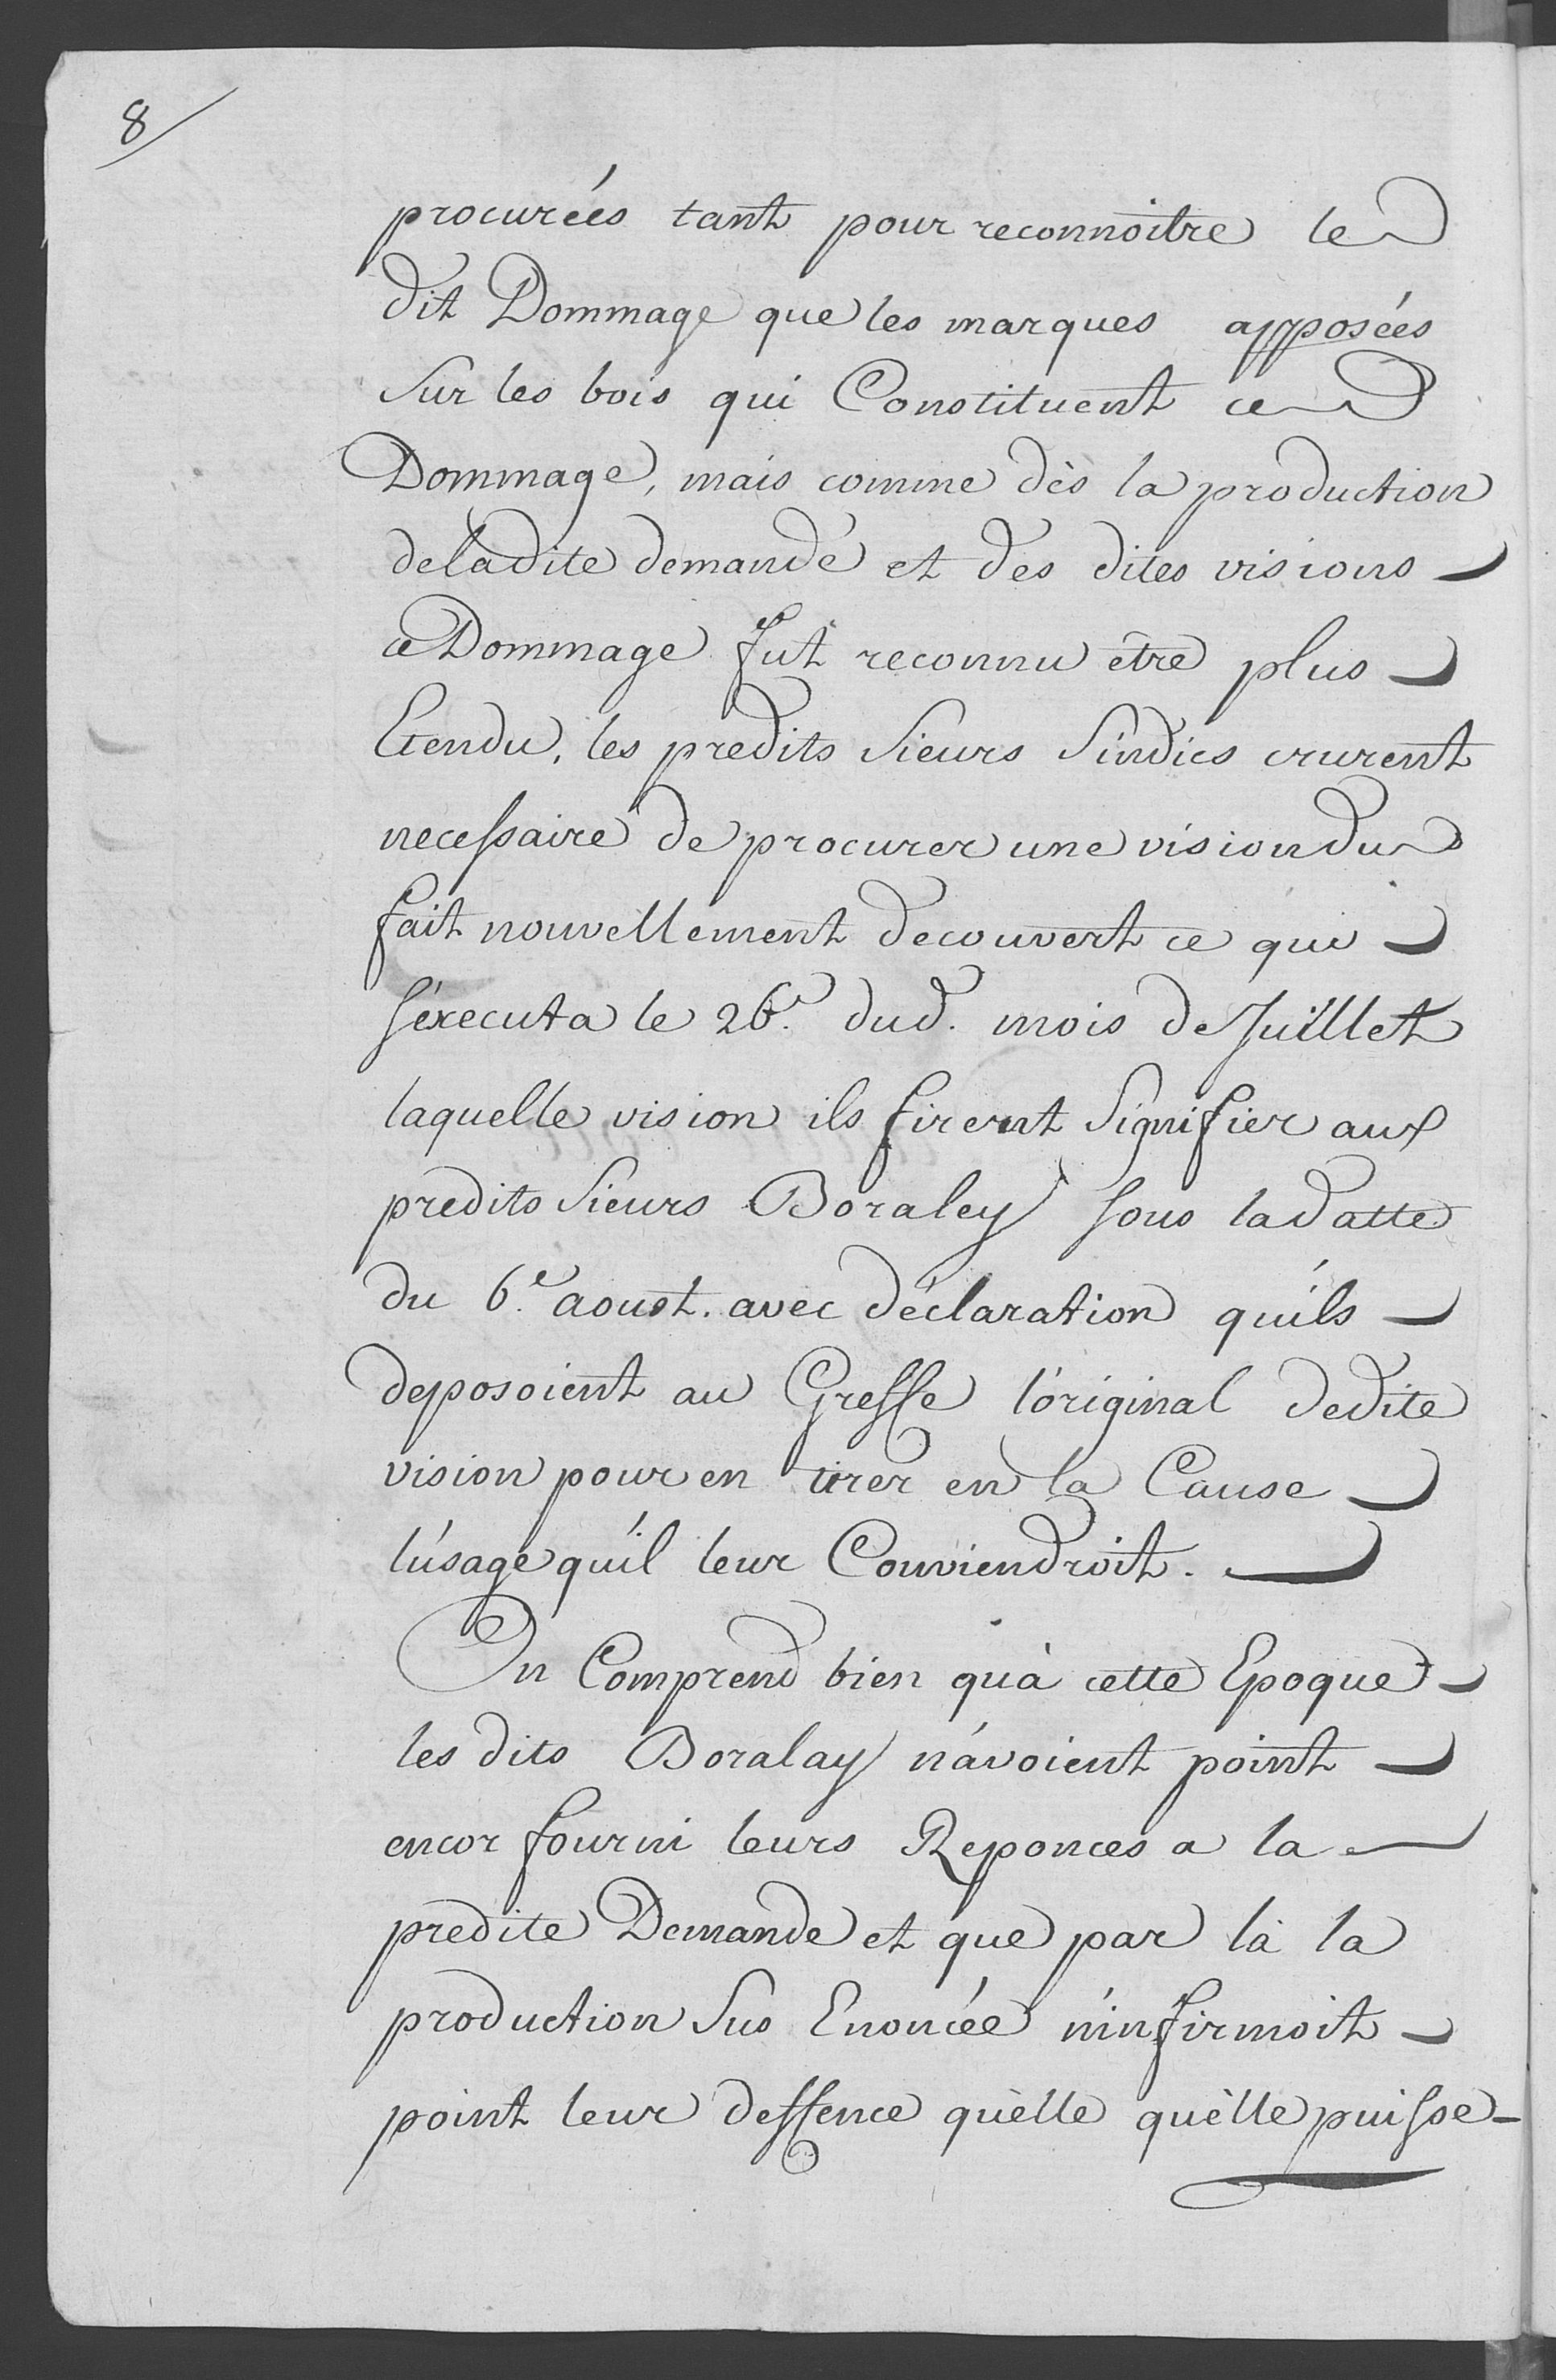 8/
procureés tant pour reconnoitre le
dit Dommage que les marques apposées
Sur les bois qui Constituent ce
Dommage, mais comme dès la production
deladite demandé et des dites visions
ce Dommage fut reconnu être plus
Etendu, les predits Sieurs Sindics crurent
necessaire de procurer une vision du
fait nouvellement decouvert ce qui
s'éxecuta le 26.e dud. mois de Juillet
laquelle vision ils firent Signifier aux
predits Sieurs Boraley sous la datte
du 6.e aoust. avec déclaration qu'ils
deposoient au Greffe l'original dedite
vision pour en tirer en la Cause
l'usage qu'il leur Conviendroit.
On Comprend bien qu'à cette Epoque
les dits Boralay n'avoient point
encor fourni leurs Reponces a la
predite Demande et que par là la
production Sus Enoncée n'infirmoit
point leur deffence qu'elle qu'elle puisse